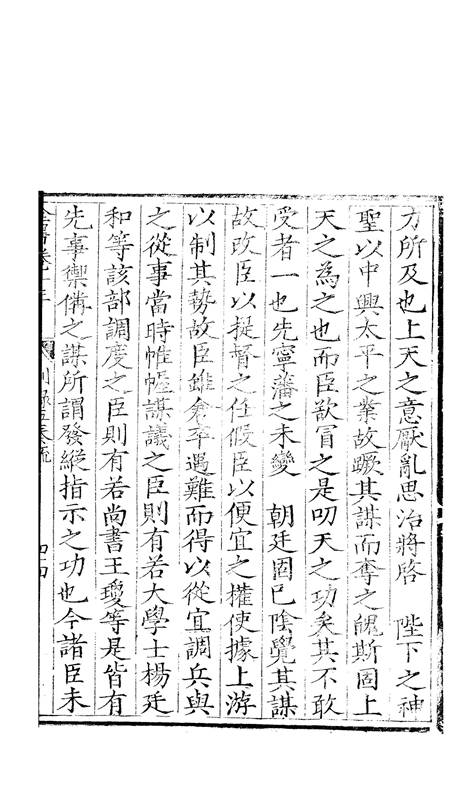 力所及也上天之意厭亂思治將啓　陛下之神
聖以中興太平之業故蹶其謀而奪之魄斯固上
天之為之也而臣欲冒之是叨天之功矣其不敢
受者一也先寧藩之未變　朝廷固已陰覺其謀
故改臣以提督之任假臣以便宜之權使據上游
以制其勢故臣雖倉卒遇難而得以從宜調兵與
之從事當時帷幄謀議之臣則有若大學士楊廷
和等該部調度之臣則有若尚書王瓊等是皆有
先事禦備之謀所謂發縱指示之功也今諸臣未
全書卷十三　别錄五奏疏　四四